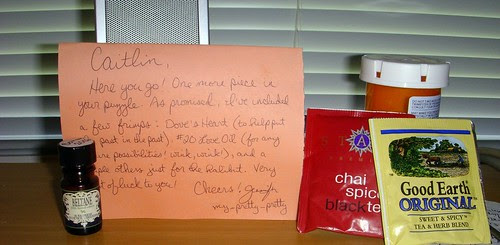 Caitlin,
Here you go! One more piece in
your puzzle. As promised, I've included
a few frimps: Dove's Heart (to help put
past in the past), #20 Love Oil (for any
possibilities! wink, wink!), and a
others just for the Very
of luck to you!
Cheers!
my-pretty-pretty
BELTANE
A
chai
spice
black te
Good Earth
ORIGINAL
SWEET & SPICY
TEA & HERB BLEND